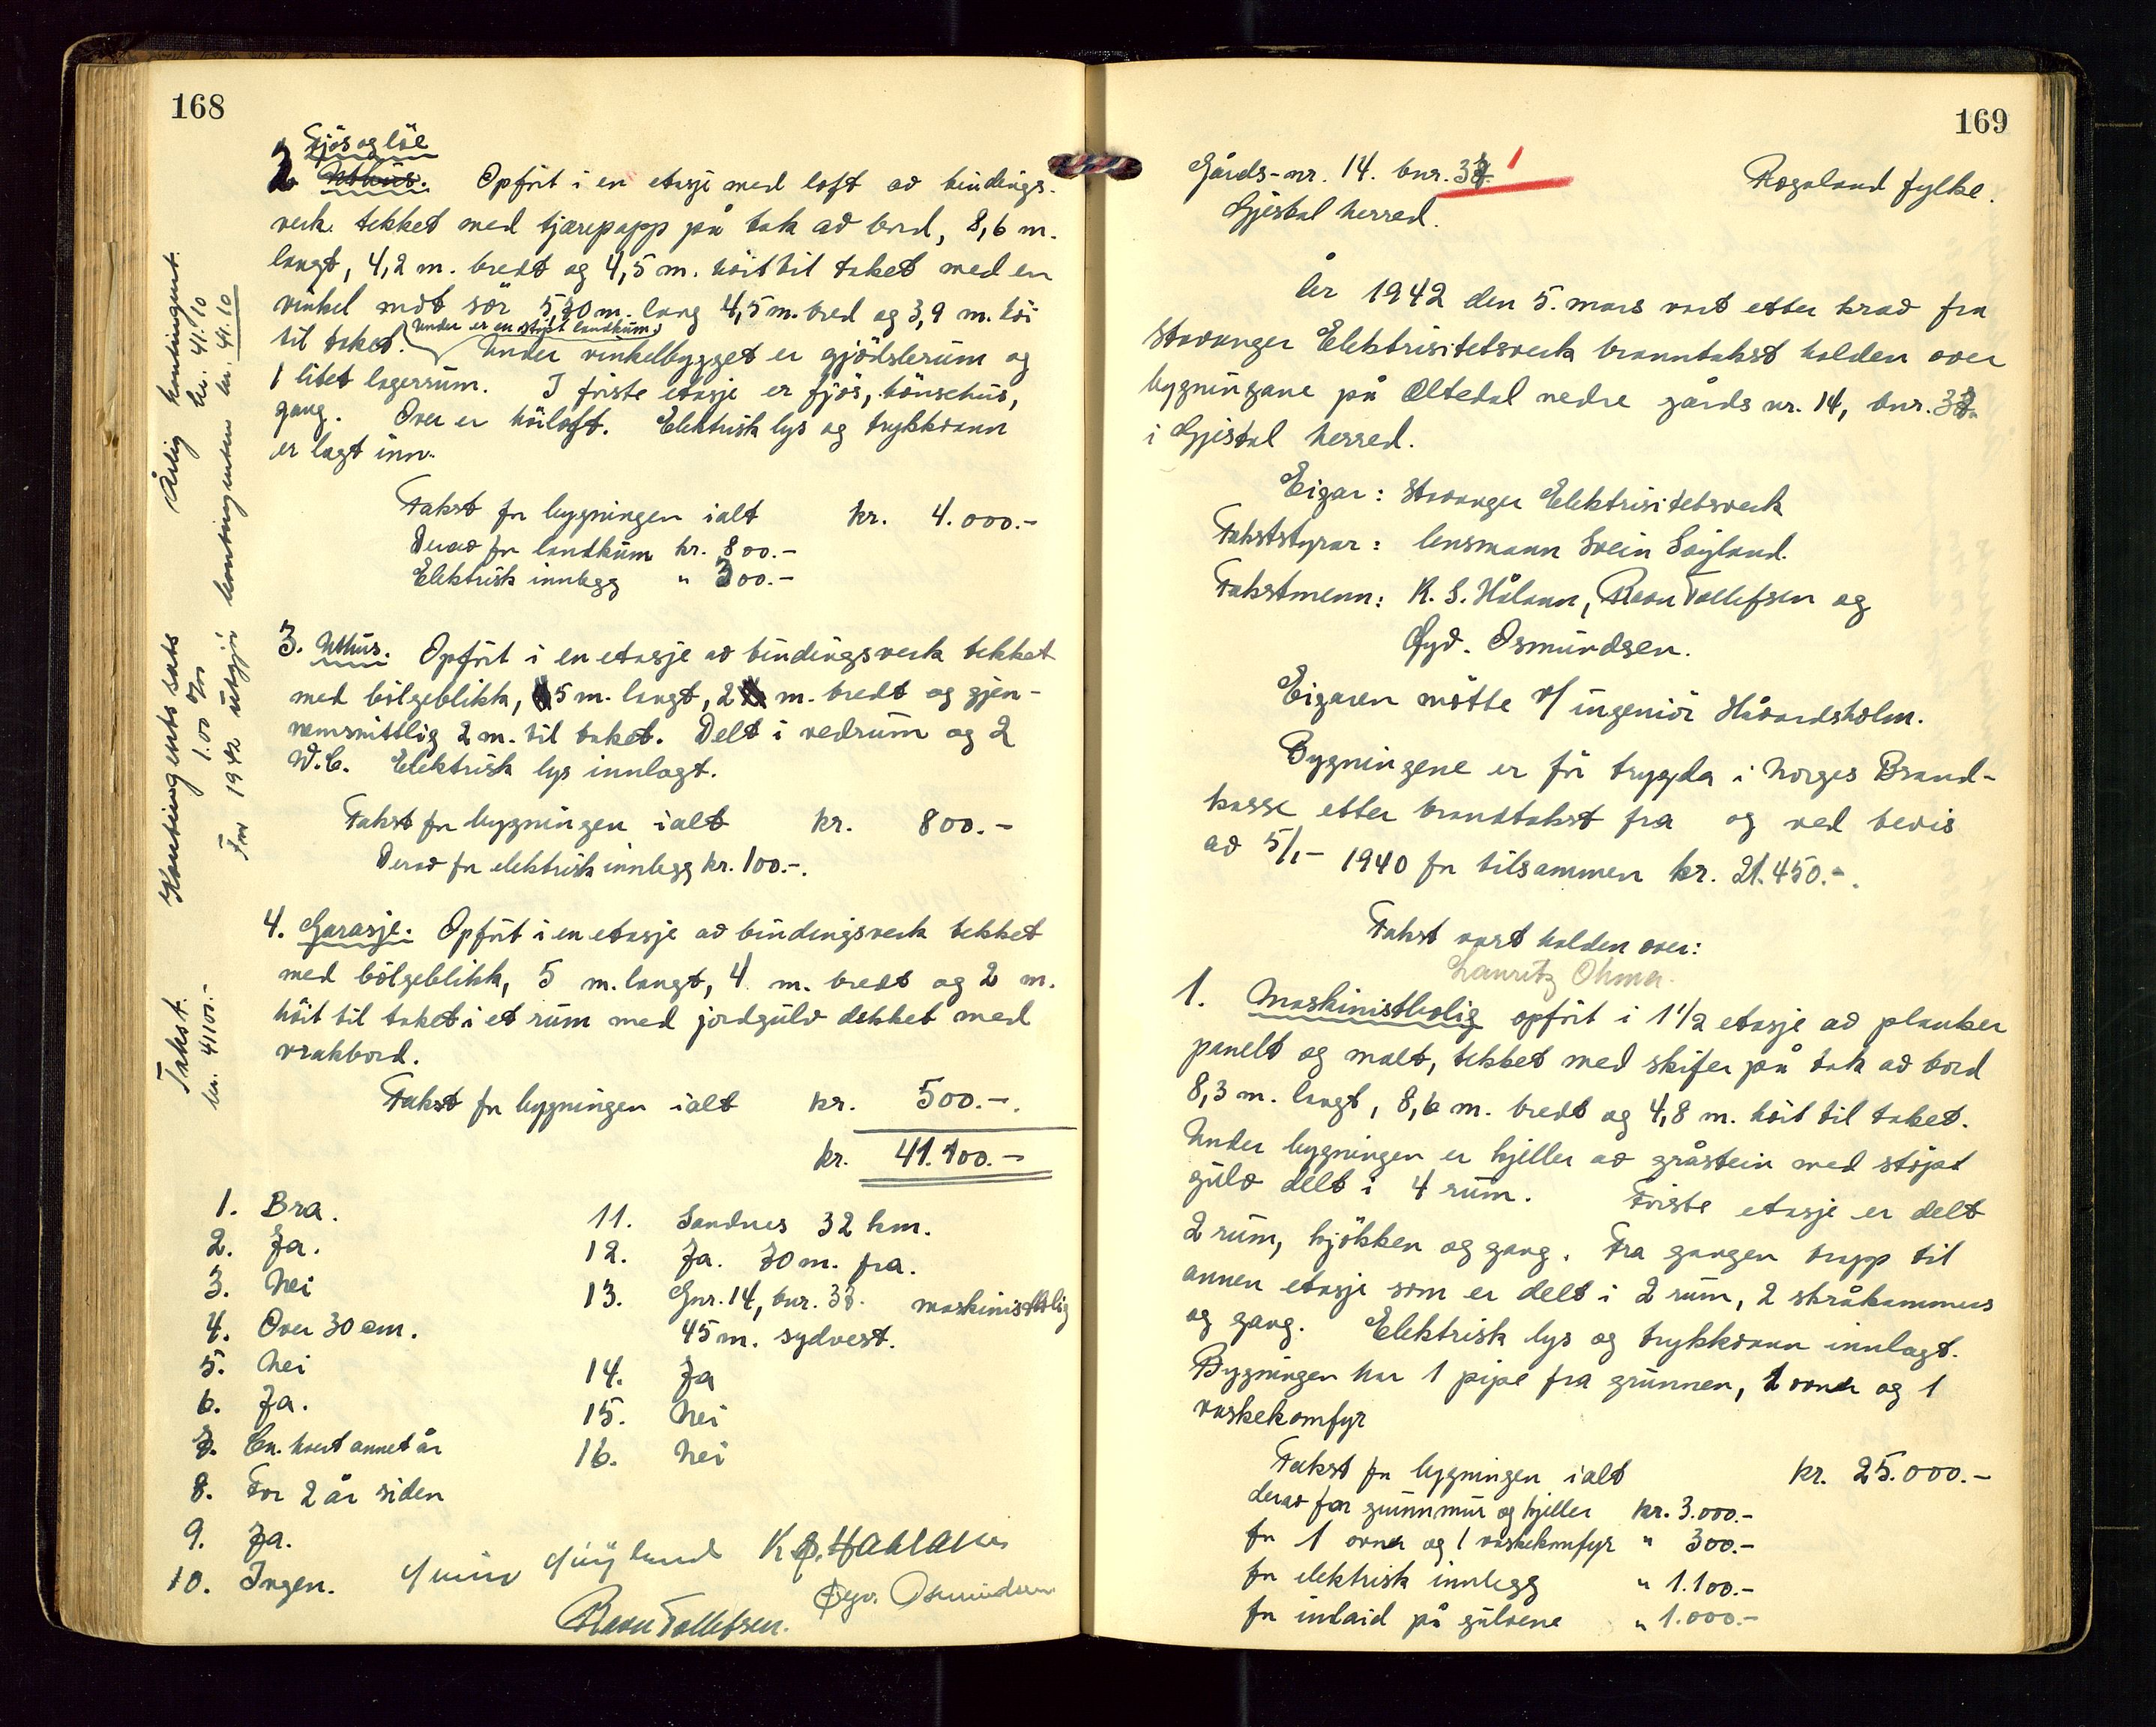 168
Fjøs og löe
2. Uthus. Opfört i en etasje med loft av bindings-
verk tekket med tjærepapp på tak av bord, 8,6 m.
langt, 4,2 m. bredt og 4,5 m. höit til taket med en
vinkel mot sör 5,70 m. lang 4,5 m. bred og 3,9 m. höi
til taket. (Under er en stöpt landkum.)
Under vinkelbygget er gjödslerum og
1 litet lagerrum. I förste etasje er fjös, hönsehus,
gang. Over er höiloft. Elektrisk lys og trykkvann
er lagt inn.
Takst for bygningen ialt kr. 4.000.-
Derav for landkum kr. 800.-
Elektrisk innlegg " 300.-
3. Uthus. Opfört i en etasje av bindingsverk tekket
med bölgeblikk, 5 m. langt, 2 m. bredt og gjen-
nemsnittlig 2 m. til taket. Delt i vedrum og 2
W.C. Elektrisk lys innlagt.
Takst for bygningen ialt kr. 800.-
Derav for elektrisk innlegg kr. 100.-.
4. Garasje. Opfört i en etasje av bindingsverk tekket
med bölgeblikk, 5 m. langt, 4 m. bredt og 2 m.
höit til taket i et rum med jordgulv dekket med
vrakbord.
Takst for bygningen ialt kr. 500.-.
kr. 41.100.-
1. Bra.
2. Ja.
3. Nei
4. Over 30 cm.
5. Nei
6. Ja.
7. Ca. hvert annet år
8. For 2 år siden
9. Ja.
10. Ingen.
11. Sandnes 32 km.
12. Ja. 70 m. fra.
13. Gnr. 14, bnr. 37. maskinistbolig
45 m. sydvest.
14. Ja
15. Nei
16. Nei
Svein Söyland K. S. Haaland
Ravn Tollefsen. Gyd. Osmundsen
Takst. Kontingentssats Årlig kontingent.
kr. 41100.- 1.00 ‰ kr. 41.10
For 1942 utgjör kontingenten kr. 41.10
169
Gårds-nr. 14. bnr. 37. 1 Rogaland fylke.
Gjestal herred.
År 1942 den 5. mars vart etter krav fra
Stavanger Elektrisitetsverk branntakst halden over
bygningane på Oltedal nedre gårds nr. 14, bnr. 37.
i Gjestal herred.
Eigar: Stavanger Elektrisitetsverk
Takststyrar: lensmann Svein Söyland.
Takstmenn: K. S. Håland, Ravn Tollefsen og
Gyd. Osmundsen.
Eigaren mötte v/ ingeniör Håvardsholm.
Bygningene er för trygda i Norges Brand-
kasse etter brandtakst fra og ved bevis
av 5/1- 1940 for tilsammen kr. 21.450.-.
Takst vart halden over:
Lauritz Ohma.
1. Maskinistbolig opfört i 1 1/2 etasje av planker
panelt og malt, tekket med skifer på tak av bord
8,3 m. langt, 8,6 m. bredt og 4,8 m. höit til taket.
Under bygningen er kjeller av gråstein med stöpt
gulv delt i 4 rum. Förste etasje er delt
2 rum, kjökken og gang. Fra gangen trapp til
annen etasje som er delt i 2 rum, 2 skråkammers
og gang. Elektrisk lys og trykkvann innlagt.
Bygningen har 1 pipe fra grunnen, 1 ovner og 1
vaskekomfyr
Takst for bygningen ialt kr. 25.000.-
derav for grunnmur og kjeller kr. 3.000.-
for 1 ovner og 1 vaskekomfyr " 300.-
for elektrisk innlegg " 1.100.-
for inlaid på gulvene " 1.000.-